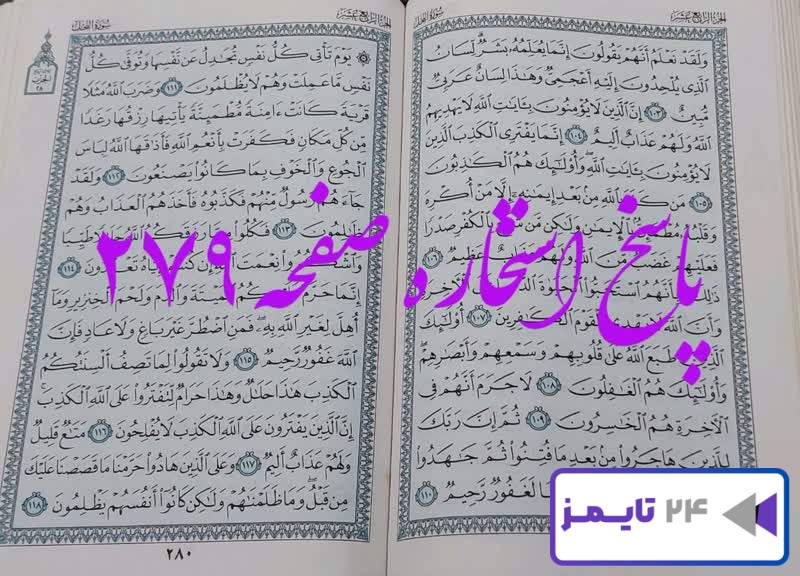 الجزء الرابع عشر
سورة النحل
وَلَقَدْ نَعْلَمُ أَنَّهُمْ يَقُولُونَ إِنَّمَا يُعَلِّمُهُ بَشَرٌ لِّسَانُ
الَّذِي يُلْحِدُونَ إِلَيْهِ أَعْجَمِيٌّ وَهَٰذَا لِسَانٌ عَرَبِيٌّ
مُّبِينٌ ١٠٣ إِنَّ الَّذِينَ لَا يُؤْمِنُونَ بِآيَاتِ اللَّهِ لَا يَهْدِيهِمُ
اللَّهُ وَلَهُمْ عَذَابٌ أَلِيمٌ ١٠٤ إِنَّمَا يَفْتَرِي الْكَذِبَ الَّذِينَ
لَا يُؤْمِنُونَ بِآيَاتِ اللَّهِ وَأُولَٰئِكَ هُمُ الْكَاذِبُونَ
١٠٥ مَن كَفَرَ بِاللَّهِ مِن بَعْدِ إِيمَانِهِ إِلَّا مَنْ أُكْرِهَ
وَقَلْبُهُ مُطْمَئِنٌّ بِالْإِيمَانِ وَلَٰكِن مَّن شَرَحَ بِالْكُفْرِ صَدْرًا
فَعَلَيْهِمْ غَضَبٌ مِّنَ اللَّهِ وَلَهُمْ عَذَابٌ عَظِيمٌ ١٠٦
ذَٰلِكَ بِأَنَّهُمُ اسْتَحَبُّوا الْحَيَاةَ الْآخِرَةِ
وَأَنَّ اللَّهَ لَا يَهْدِي الْقَوْمَ الْكَافِرِينَ ١٠٧ أُولَٰئِكَ
الَّذِينَ طَبَعَ اللَّهُ عَلَىٰ قُلُوبِهِمْ وَسَمْعِهِمْ وَأَبْصَارِهِمْ
وَأُولَٰئِكَ هُمُ الْغَافِلُونَ ١٠٨ لَا جَرَمَ أَنَّهُمْ فِي
الْآخِرَةِ هُمُ الْخَاسِرُونَ ١٠٩ ثُمَّ إِنَّ رَبَّكَ
لِلَّذِينَ هَاجَرُوا مِن بَعْدِ مَا فُتِنُوا ثُمَّ جَاهَدُوا
لَغَفُورٌ رَّحِيمٌ ١١٠
الجزء الرابع عشر
سورة النحل
يَوْمَ تَأْتِي كُلُّ نَفْسٍ تُجَادِلُ عَن نَّفْسِهَا وَتُوَفَّىٰ كُلُّ
نَفْسٍ مَّا عَمِلَتْ وَهُمْ لَا يُظْلَمُونَ ١١١ وَضَرَبَ اللَّهُ مَثَلًا
قَرْيَةً كَانَتْ آمِنَةً مُّطْمَئِنَّةً يَأْتِيهَا رِزْقُهَا رَغَدًا
مِّن كُلِّ مَكَانٍ فَكَفَرَتْ بِأَنْعُمِ اللَّهِ فَأَذَاقَهَا اللَّهُ لِبَاسَ
الْجُوعِ وَالْخَوْفِ بِمَا كَانُوا يَصْنَعُونَ ١١٢ وَلَقَدْ
جَاءَهُمْ رَسُولٌ مِّنْهُمْ فَكَذَّبُوهُ فَأَخَذَهُمُ الْعَذَابُ وَهُمْ
ظَالِمُونَ ١١٣ فَكُلُوا مِمَّا رَزَقَكُمُ اللَّهُ حَلَالًا طَيِّبًا
وَاشْكُرُوا نِعْمَتَ اللَّهِ إِن كُنتُمْ إِيَّاهُ تَعْبُدُونَ ١١٤
إِنَّمَا حَرَّمَ عَلَيْكُمُ الْمَيْتَةَ وَالدَّمَ وَلَحْمَ الْخِنزِيرِ وَمَا
أُهِلَّ لِغَيْرِ اللَّهِ بِهِ فَمَنِ اضْطُرَّ غَيْرَ بَاغٍ وَلَا عَادٍ فَإِنَّ
اللَّهَ غَفُورٌ رَّحِيمٌ ١١٥ وَلَا تَقُولُوا لِمَا تَصِفُ أَلْسِنَتُكُمُ
الْكَذِبَ هَٰذَا حَلَالٌ وَهَٰذَا حَرَامٌ لِّتَفْتَرُوا عَلَى اللَّهِ الْكَذِبَ
إِنَّ الَّذِينَ يَفْتَرُونَ عَلَى اللَّهِ الْكَذِبَ لَا يُفْلِحُونَ ١١٦ مَتَاعٌ قَلِيلٌ
وَلَهُمْ عَذَابٌ أَلِيمٌ ١١٧ وَعَلَى الَّذِينَ هَادُوا حَرَّمْنَا مَا قَصَصْنَا عَلَيْكَ
مِن قَبْلُ وَمَا ظَلَمْنَاهُمْ وَلَٰكِن كَانُوا أَنفُسَهُمْ يَظْلِمُونَ ١١٨
٢٨٠
پاسخ استخاره صفحه ۲۷۹
۲۴ تایمز